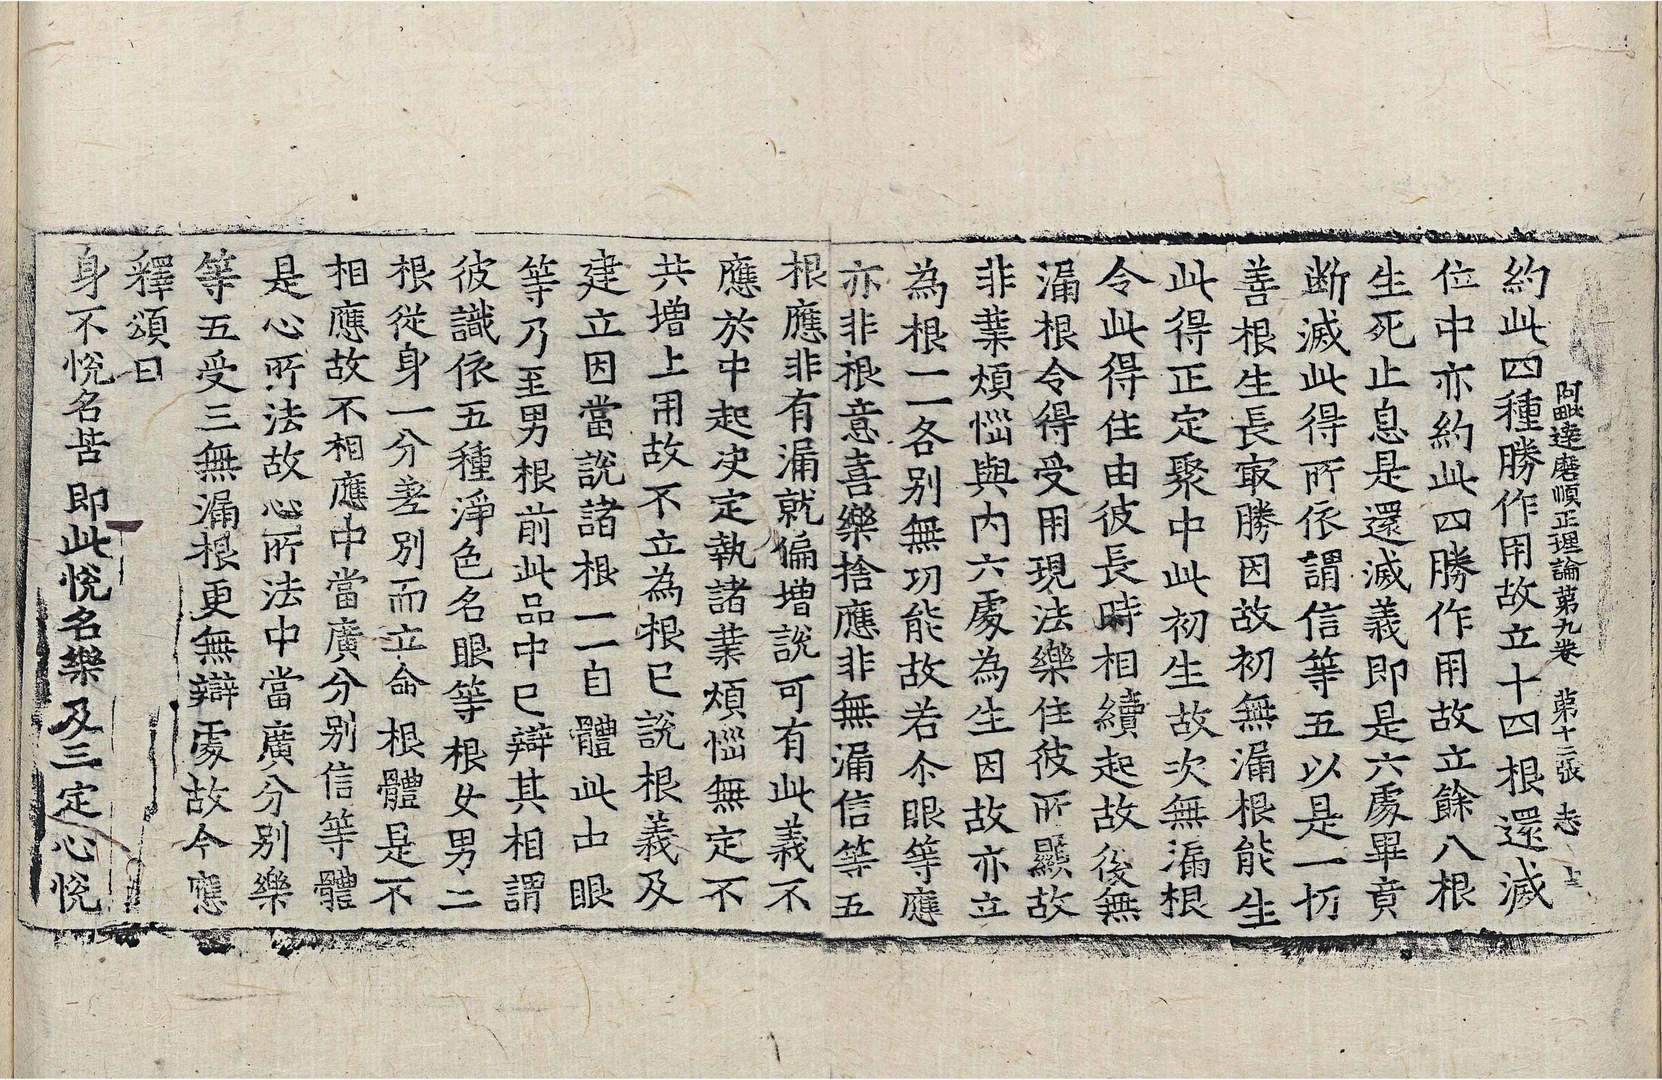 阿毗達磨順正理論第九卷　第十二張　志
約此四種勝作用故立十四根還滅
位中亦約此四勝作用故立餘八根
生死止息是還滅義即是六處畢竟
断滅此得所依謂信等五以是一切
善根生長㝡勝因故初無漏根能生
此得正定聚中此初生故次無漏根
令此得住由彼長時相續起故後無
漏根令得受用現法樂住彼所顯故
非業煩惱與內六處為生因故亦立
為根一一各别無功能故若尒眼等應
亦非根意喜樂捨應非無漏信等五
根應非有漏就偏增說可有此義不
應於中起决定執諸業煩惱無定不
共增上用故不立為根已說根義及
建立因當說諸根一一自體此由眼
等乃至男根前此品中已辯其相謂
彼識依五種淨色名眼等根女男二
根從身一分差別而立命根體是不
相應故不相應中當廣分别信等體
是心所法故心所法中當廣分别樂
等五受三無漏根更無辯處故今應
釋頌曰
身不悅名苦　即此悅名樂及三定心悅